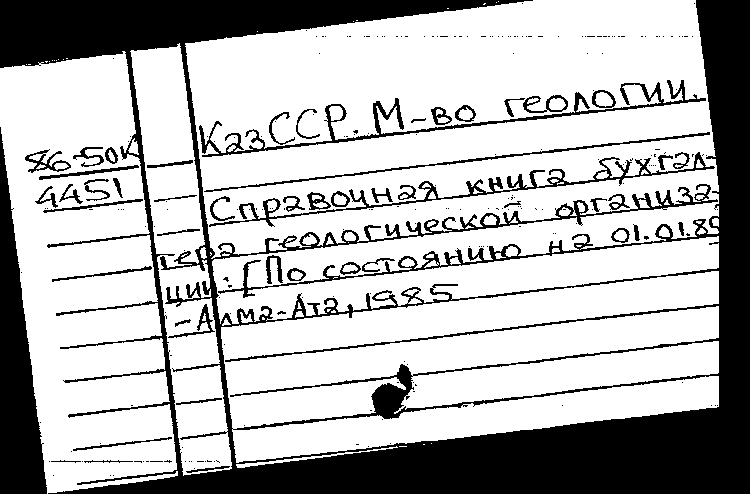 КазССР. М-во геологии.
86-50к
4451
Справочная книга бухгал-
тера геологической организа-
ции: [По состоянию на 01.01.85
-Алма-Ата, 1985